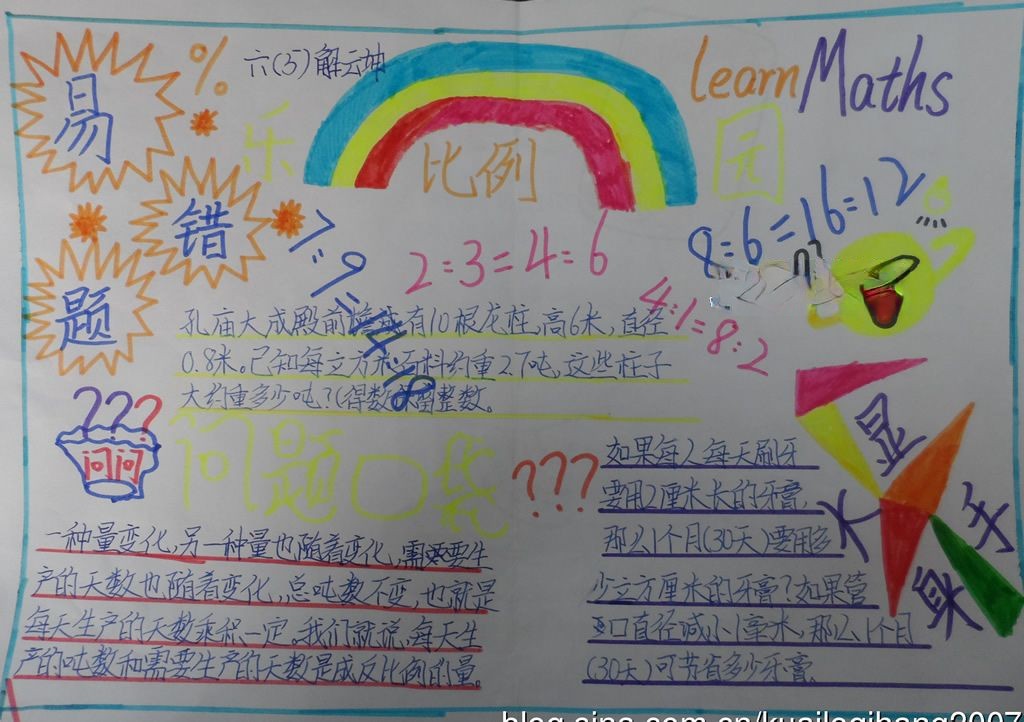 易
错
题
%
六(5)解云坤
乐
比例
园
learn Maths
7:9=14:18
2:3=4:6
8:6=16:12
4:1=8:2
孔庙大成殿前檐有10根龙柱,高6米,直径
0.8米。已知每立方米石料约重2.7吨,这些柱子
大约重多少吨?(得数保留整数。
???
问问
问题口袋
???
一种量变化,另一种量也随着变化,需要要生
产的天数也随着变化,总吨数不变,也就是
每天生产的天数乘积一定。我们就说,每天生
产的吨数和需要生产的天数是成反比例的量。
大显
身手
如果每人每天刷牙
要用2厘米长的牙膏,
那么1个月(30天)要用多
少立方厘米的牙膏?如果管
口直径减小1毫米,那么1个月
(30天)可节省多少牙膏.
blog.sina.com.cn/kuailegihang2007